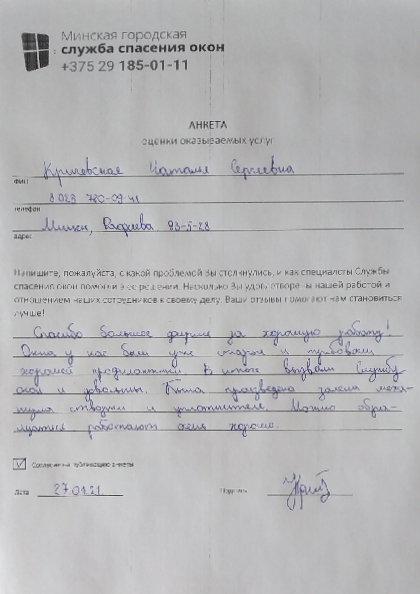 Минская городская
служба спасения окон
+375 29 185-01-11
АНКЕТА
оценки оказываемых услуг
Кричевская Наталья Сергеевна
ФИО
8 029 780-09-41
телефон
Минск, 93-5-28
адрес
Напишите, пожалуйста, с какой проблемой Вы столкнулись, и как специалисты Службы
спасения окон помогли в ее решении. Насколько Вы удовлетворены нашей работой и
отношением наших сотрудников к своему делу. Ваши отзывы помогают нам становиться
лучше!
Спасибо большое фирме за хорошую работу!
Окна у нас были уже старые и требовали
хорошей профилактики. В итоге вызвали Службу
окон и довольны. Была произведена замена меха-
низма створки и уплотнителя. Можно обра-
щаться работают очень хорошо.
Согласие на публикацию анкеты
Дата 27.01.21. Подпись